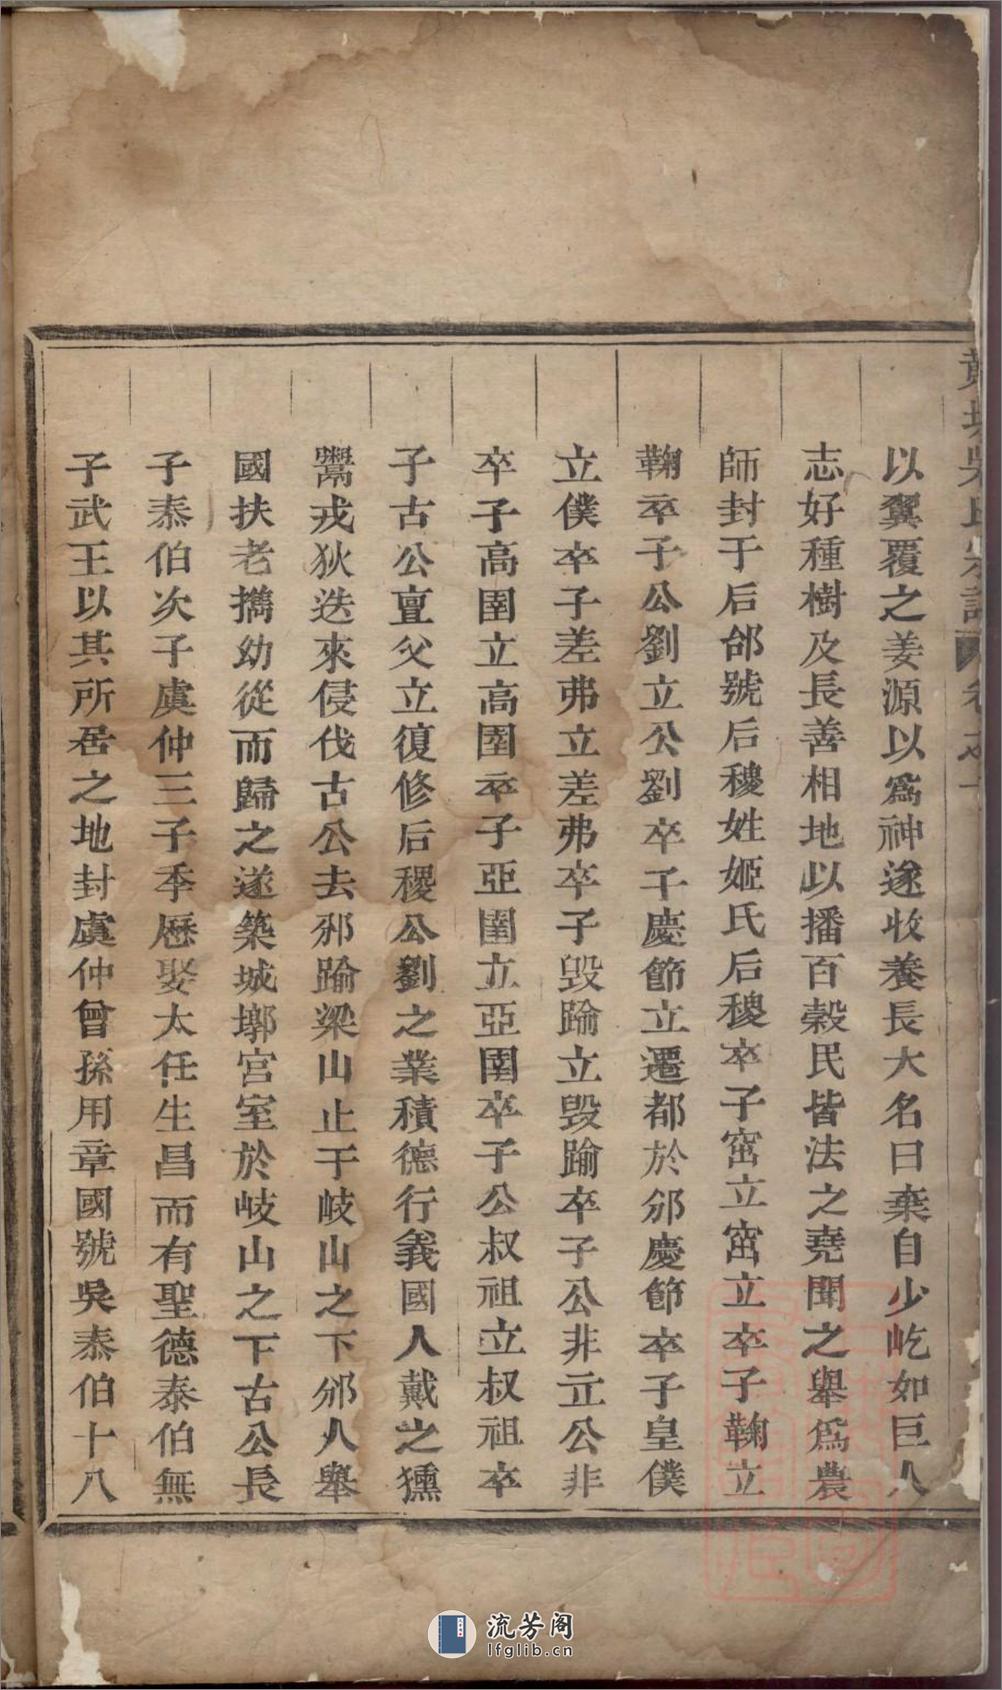 以翼覆之姜源以爲神遂收養長大名曰棄自少屹如巨人
志好種樹及長善相地以播百穀民皆法之堯聞之舉爲農
師封于后邰號后稷姓姬氏后稷卒子窋立窋立卒子鞠立
鞠卒子公劉立公劉卒子慶節立遷都於邠慶節卒子皇僕
立僕卒子差弗立差弗卒子毁踰立毁踰卒子公非立公非
卒子高圉立高圉卒子亞圉立亞圉卒子公叔祖立叔祖卒
子古公亶父立復修后稷公劉之業積德行義國人戴之獯
鬻戎狄迭來侵伐古公去邠踰梁山止于岐山之下邠人舉
國扶老攜幼從而歸之遂築城墎宮室於岐山之下古公長
子泰伯次子虞仲三子季歷娶太任生昌而有聖德泰伯無
子武王以其所居之地封虞仲曾孫用章國號吳泰伯十八
流芳阁
lfglib.cn